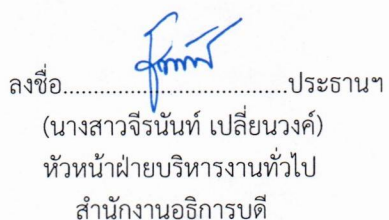 ลงชื่อ.....................................ประธานฯ
(นางสาวจีรนันท์ เปลี่ยนวงค์)
หัวหน้าฝ่ายบริหารงานทั่วไป
สำนักงานอธิการบดี